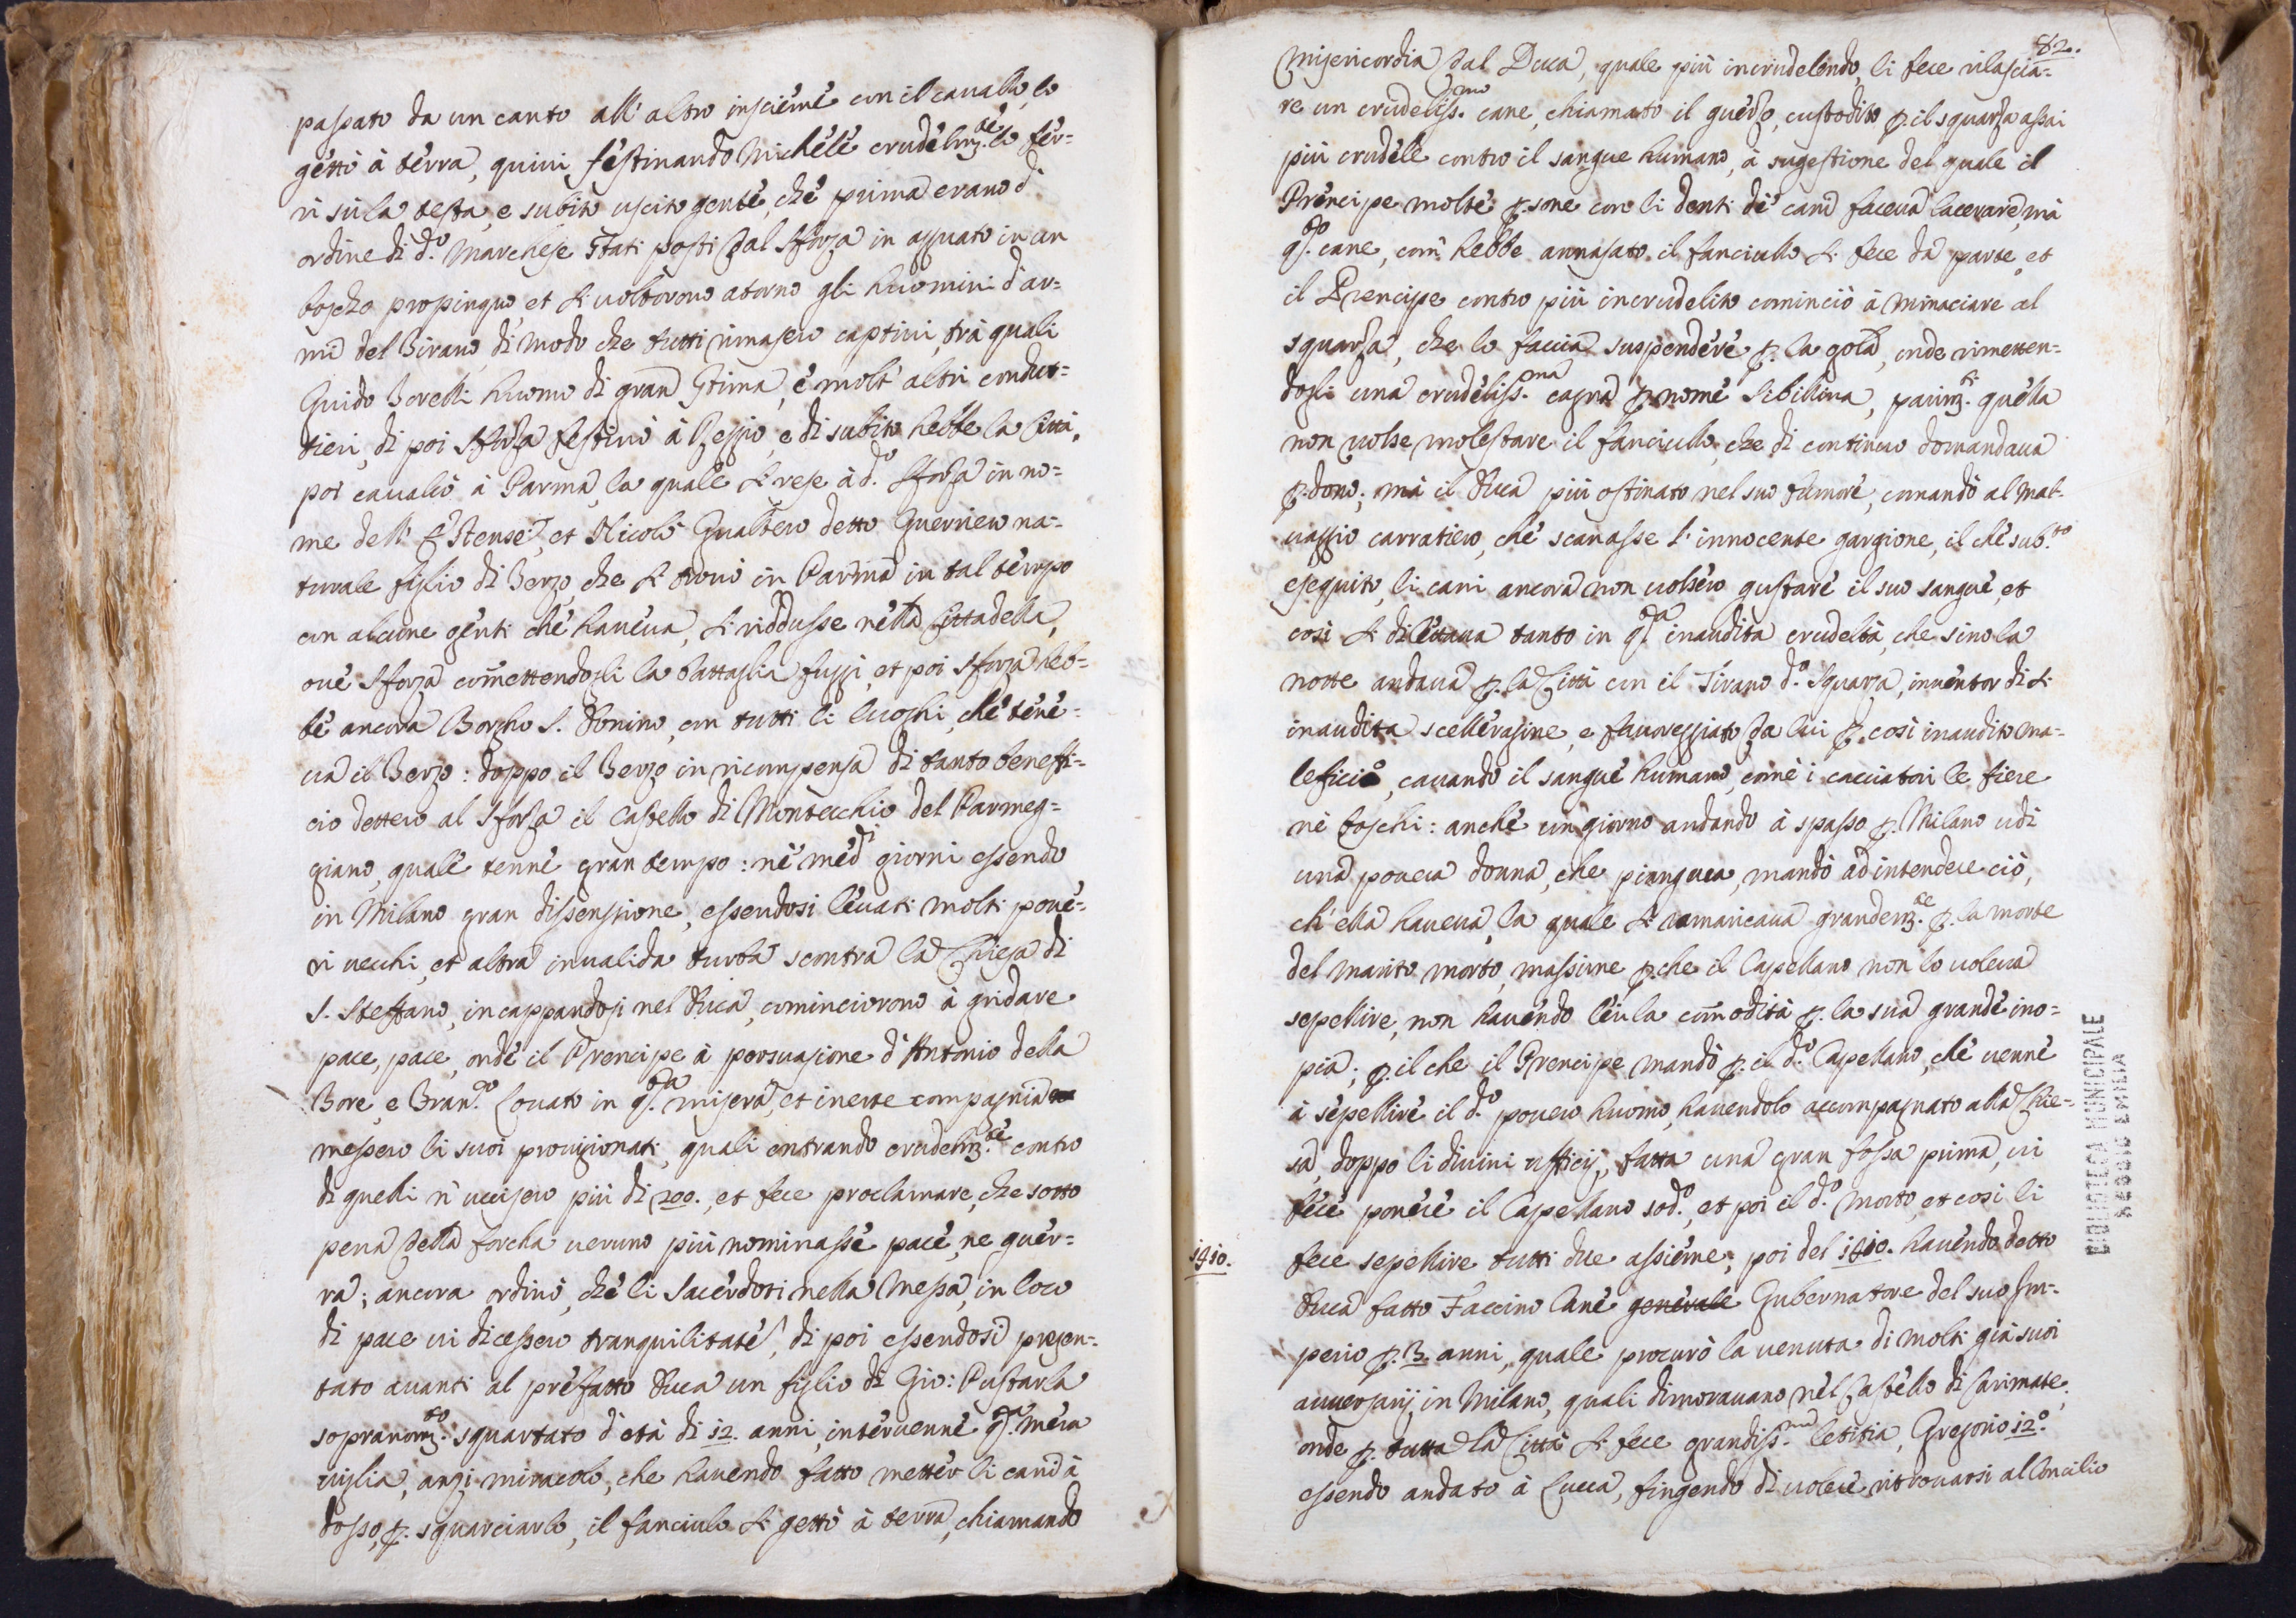 passato da un canto all' altro insciemé con il cauallo, lo
gettò à terra, quiui festinando Michele crudelm.te lo fer-
rì sù la testa, e subito uscito gente, ché prima erano d'
ordine di d.o Marchese stati posti dal Sforza in aguato in un
boscho propinquo et si uoltorono atorno gli huomini d' ar-
mi del Tirano, di modo che tutti rimasero captiui, trà quali
Guido Torelli huomo di gran stima, e molt' altri condut=
tieri, di poi Sforza festinò à Reggio, e di subito hebbe la Città,
poi caualcò à Parma, la quale si rese à d.o Sforza in no=
me dell' Estense, et Nicolò Gualtero detto Guerriero na=
turale figlio di Terzo, che si trouò in Parma in tal tempo
con alcune genti ché haueua, si riddusse nella Cittadella,
oue Sforza comettendogli la battaglia fuggì, et poi Sforza heb-
be ancora Borgho S. Donino, con tutti li luoghi, ché tene=
ua il Terzo: doppo il Terzo in ricompensa di tanto benefi=
cio dettero al Sforza il Castello di Montecchio del Parmeg=
giano, quale tenne gran tempo: nè med.i giorni essendo
in Milano gran dissensione, essendosi leuati molti poue=
ri uecchi, et altra inualida turba scontra la Chiesa di
S. Steffano, incappandosi nel Duca, cominciorono à gridare
pace, pace, onde il Prencipe à persuasione d' Antonio della
Tore, e Fran.co Louato in q.sta misera, et inerte compagnia
messero li suoi prouigionati, quali entrando crudelm.te contro
di quelli n' uccisero più di 200., et fece proclamare, che sotto
pena della forcha ueruno più nominasse pace, ne guer=
ra; ancora ordinò, che li Sacerdoti nella Messa, in loco
di pace ui dicessero tranquilitate, di poi essendosi presen=
tato auanti al prefatto Duca un figlio di Gio: Pustarla
sopranom.to squartato d' età di 12. anni, interuenne q.sta mera
uiglia, anzi miracolo, che hauendo fatto metter li cani à
dosso, p. squarciarlo, il fanciulo si gettò à terra, chiamando
82.
Misericordia dal Duca, quale più incrudelendo, li fece rilascia=
re un crudeliss.mo cane, chiamato il guerzo, custodito p. il squarza assai
più crudele contro il sangue humano, à sugestione del quale il
Prencipe molte p.sone con li denti de' cani faceua lacerare, mà
q.sto cane, com' hebbe annasato il fanciullo si fece da parte, et
il Prencipe contro più incrudelito cominciò à minaciare al
squarza, che lo faccia suspendere p. la gola, onde rimetten=
dogli una crudeliss.ma cagna p. nome Sibillina, parim.ti quella
non uolse molestare il fanciullo, che di continuo domandaua
p.dono; mà il Duca più ostinato nel suo furore, comandò al mal-
uaggio carratiero, ché scanasse l' innocente gargione, il ché sub.to
eseguito, li cani ancora non uolsero gustare il suo sangue, et
così si dilettaua tanto in q.sta inaudita crudeltà, che sino la
notte andaua p. la Città con il Tirano d.o Squarza, inuentor di si
inaudita scelleragine, e fauoreggiato da lui p. così inaudito ma=
leficio, cauando il sangue humano, come i cacciatori le fiere
nè boschi: anche un giorno andando à spasso p. Milano udì
una pouera donna, che piangeua, mandò ad intendere ciò,
ch' ella haueua, la quale si ramaricaua grandem.te p. la morte
del marito morto, massime p.che il Capellano non lo uoleua
sepellire, non hauendo leu la comodità p. la sua grande ino=
pia; p. il che il Prencipe mandò p. il d.o Capellano, ché uenne
à sepellire il d.o pouero huomo, hauendolo accompagnato alla Chie=
sa, doppo li diuini ufficij, fatta una gran fossa prima, ui
fece ponere il Capellano sod.o, et poi il d.o morto, et così li
1410. fece sepellire tutti due assieme; poi del 1410. hauendo detto
Duca fatto Faccino Cane generale Gubernatore del suo Im-
perio p. 3. anni, quale procurò la uenuta di molti già suoi
auuersarij in Milano, quali dimorauano nel Castello di Carimate,
onde p. tutta la Città si fece grandiss.ma letitia, Gregorio 12.o
essendo andato à Lucca, fingendo di uolere ritrouarsi al Concilio
BIBLIOTECA MUNICIPALE
REGGIO EMILIA